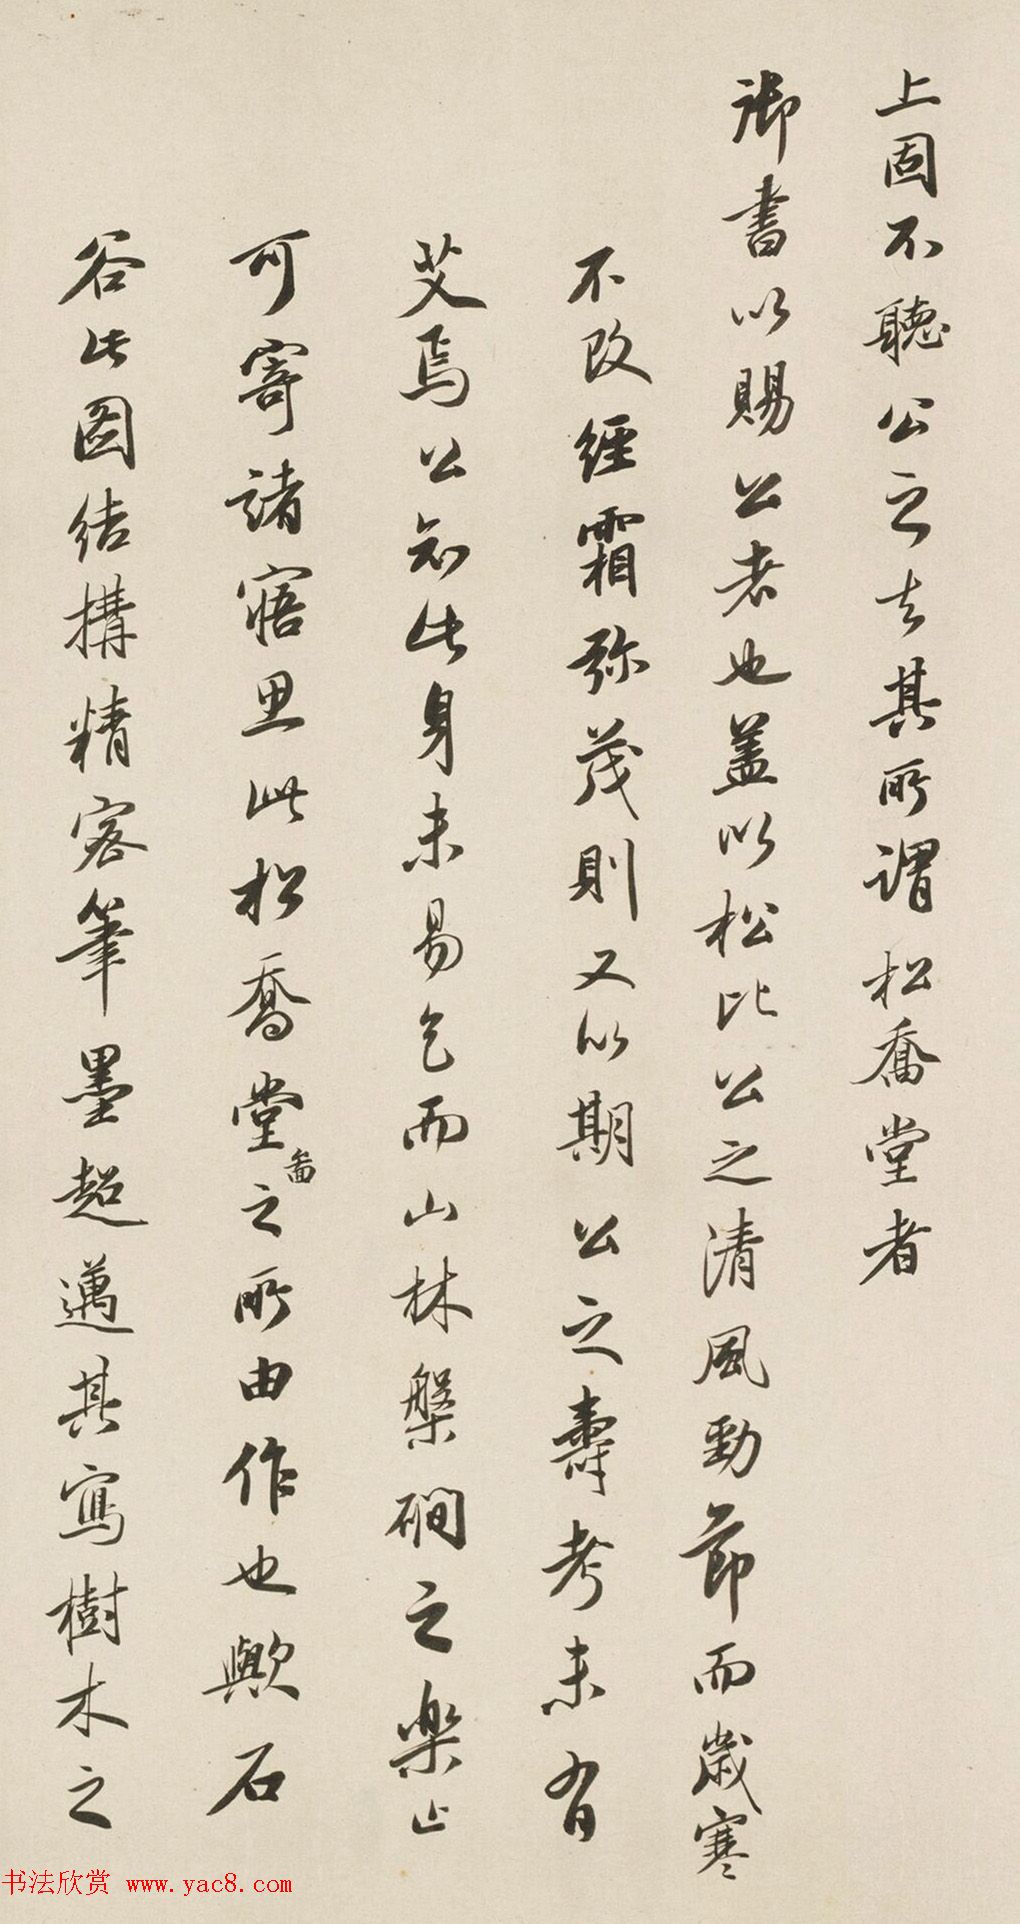 上固不聽公之去其所謂松喬堂者
御書以賜公者也蓋以松比公之清風勁節而歲寒
不改經霜弥茂則又以期公之壽考未有
艾焉公知此身未易乞而山林槃磵之樂止
可寄諸寤思此松喬堂圖之所由作也歟石
谷此圖結搆精密筆墨超邁其寫樹木之
书法欣赏 www.yac8.com